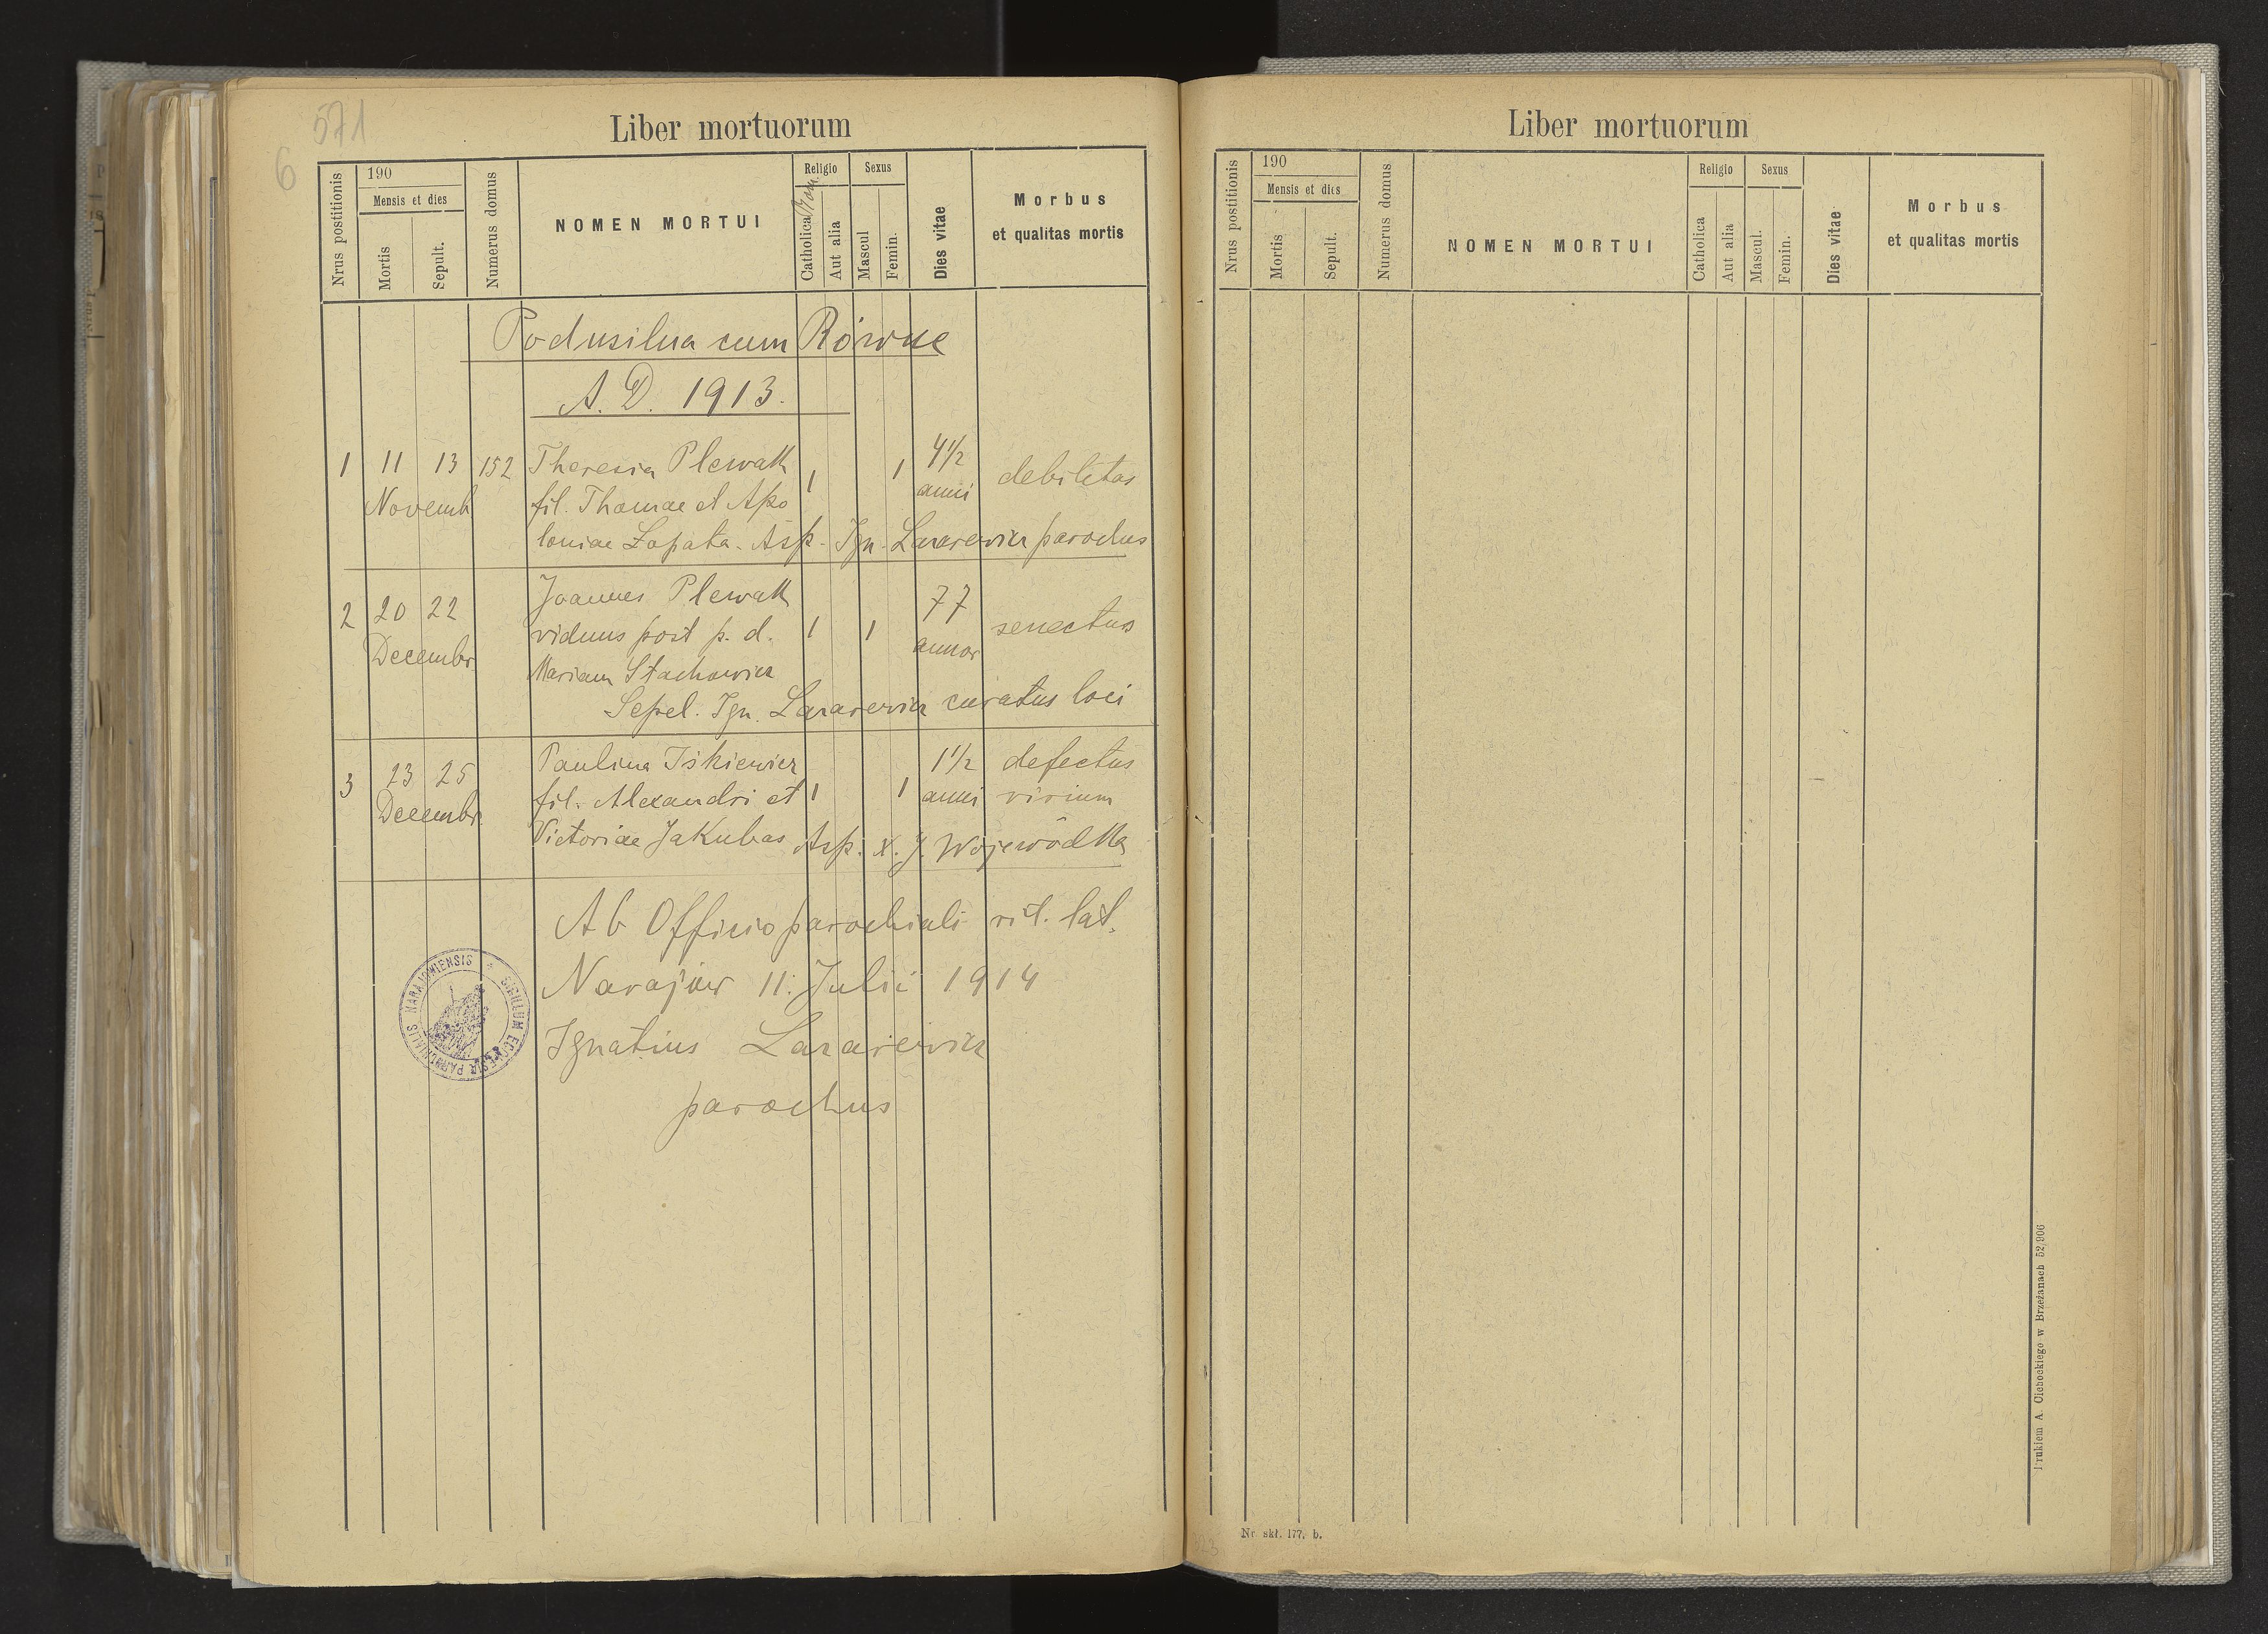 571
6
Liber mortuorum
Nrus postitionis
190
Mensis et dies
Mortis
Sepult.
Numerus domus
NOMEN MORTUI
Religio
Catholica Rom.
Aut alia
Sexus
Mascul
Femin.
Dies vitae
Morbus
et qualitas mortis
Podusilna cum Równe
A. D. 1913.
1 11 13 152 Theresia Plewak 1 1 4 1/2 debilitas
Novemb fil. Thomae et Apo anni
loniae Łapata. Asp. Ign. Lazarewicz parochus
2 20 22 Joannes Plewak 77
viduus post p. d. 1 1 senectus
Decembr annor
Mariam Stachowicz
Sepel. Ign. Lazarewicz curatus loci
3 23 25 Paulina Iśkiewicz 1 1/2 defectus
Decembr. fil. Alexandri et 1 1 anni virium
Victoriae Jakubas Asp. X. J. Wojewódka
Ab Officio parochiali rit. lat.
Narajów 11. Julii 1914
Ignatius Lazarewicz
parochus
SIGILLUM ECCLESIA PAROCHIALIS NARAJOVIENSIS
Liber mortuorum
Nrus postitionis
190
Mensis et dies
Mortis
Sepult.
Numerus domus
NOMEN MORTUI
Religio
Catholica
Aut alia
Sexus
Mascul.
Femin.
Dies vitae
Morbus
et qualitas mortis
Drukiem A. Cichockiego w Brzeżanach 52/906
Nr. skł. 177. b.